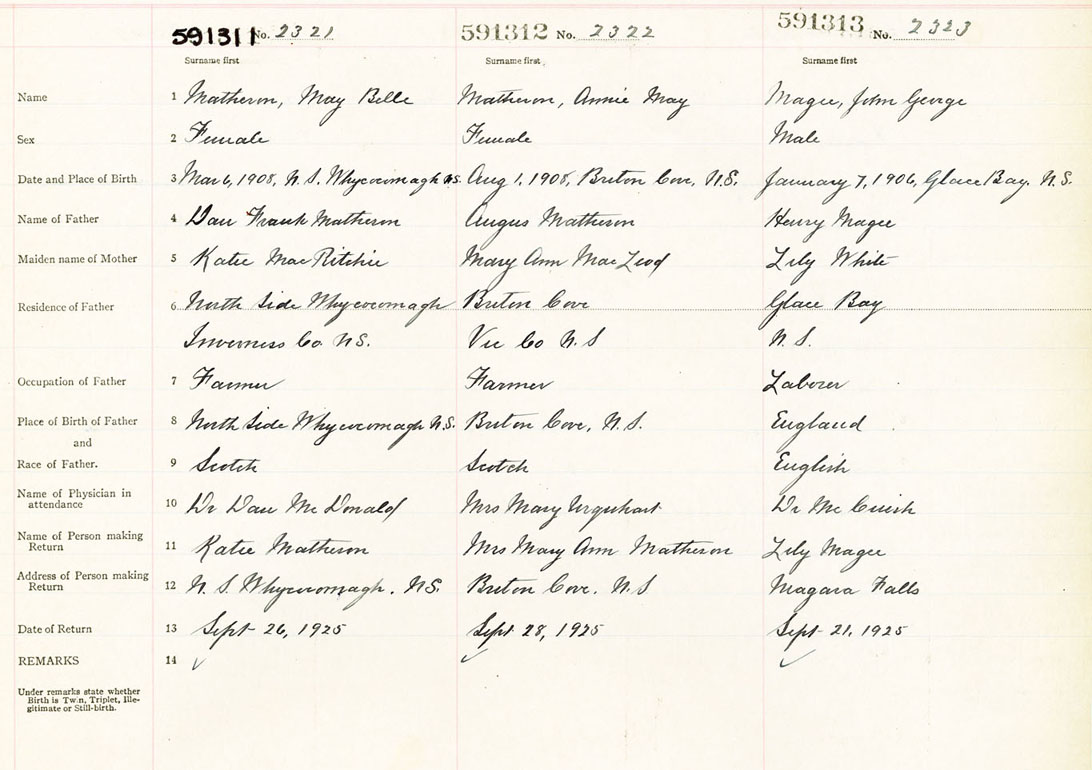 591311 No. 2321 591312 No. 2322 591313 No. 2323
Surname first Surname first Surname first
Name 1 Matheson, May Belle Matheson, Annie May Magee, John George
Sex 2 Female Female Male
Date and Place of Birth 3 Mar 6, 1908, N. S. Whycocomagh N.S. Aug 1, 1908, Breton Cove, N.S. January 7, 1906, Glace Bay. N.S.
Name of Father 4 Dan Frank Matheson Angus Matheson Henry Magee
Maiden name of Mother 5 Katie MacRitchie Mary Ann MacLeod Lily White
Residence of Father 6 North Side Whycocomagh Breton Cove Glace Bay
Inverness Co. N.S. Vic Co N.S N.S.
Occupation of Father 7 Farmer Farmer Laborer
Place of Birth of Father 8 North Side Whycocomagh N.S. Breton Cove, N.S. England
and
Race of Father. 9 Scotch Scotch English
Name of Physician in
attendance 10 Dr Dan McDonald Mrs Mary Urquhart Dr McCuish
Name of Person making
Return 11 Katie Matheson Mrs Mary Ann Matheson Lily Magee
Address of Person making
Return 12 N. S. Whycocomagh. N.S. Breton Cove. N.S Niagara Falls
Date of Return 13 Sept 26, 1925 Sept 28, 1925 Sept 21, 1925
REMARKS 14 ✓ ✓ ✓
Under remarks state whether
Birth is Twin, Triplet, Ille-
gitimate or Still-birth.